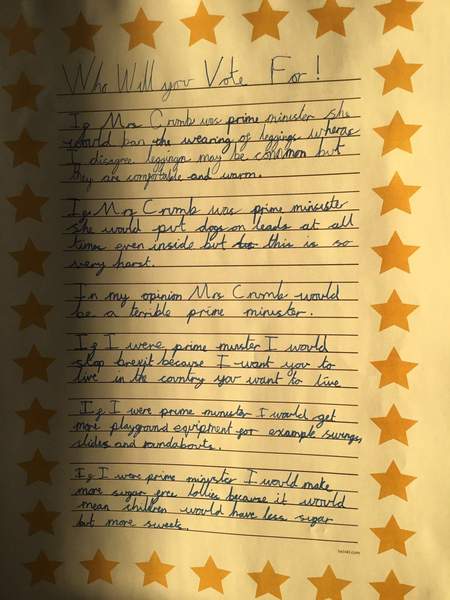 Who Will you Vote For!
If Mrs Crumb was prime minister she
would ban the wearing of leggings wheras
I disagree leggings may be common but
they are comfortable and warm.
If Mrs Crumb was prime minister
she would put dogs on leads at all
times even inside but this is so
very harst.
In my opinion Mrs Crumb would
be a terrible prime minister.
If I were prime minster I would
stop brexit because I want you to
live in the country you want to live
If I were prime minister I would get
more playground equipment for example swings,
slides and roundabouts.
If I were prime minister I would make
more sugar free lollies because it would
mean children would have less sugar
but more sweets.
twinkl.com